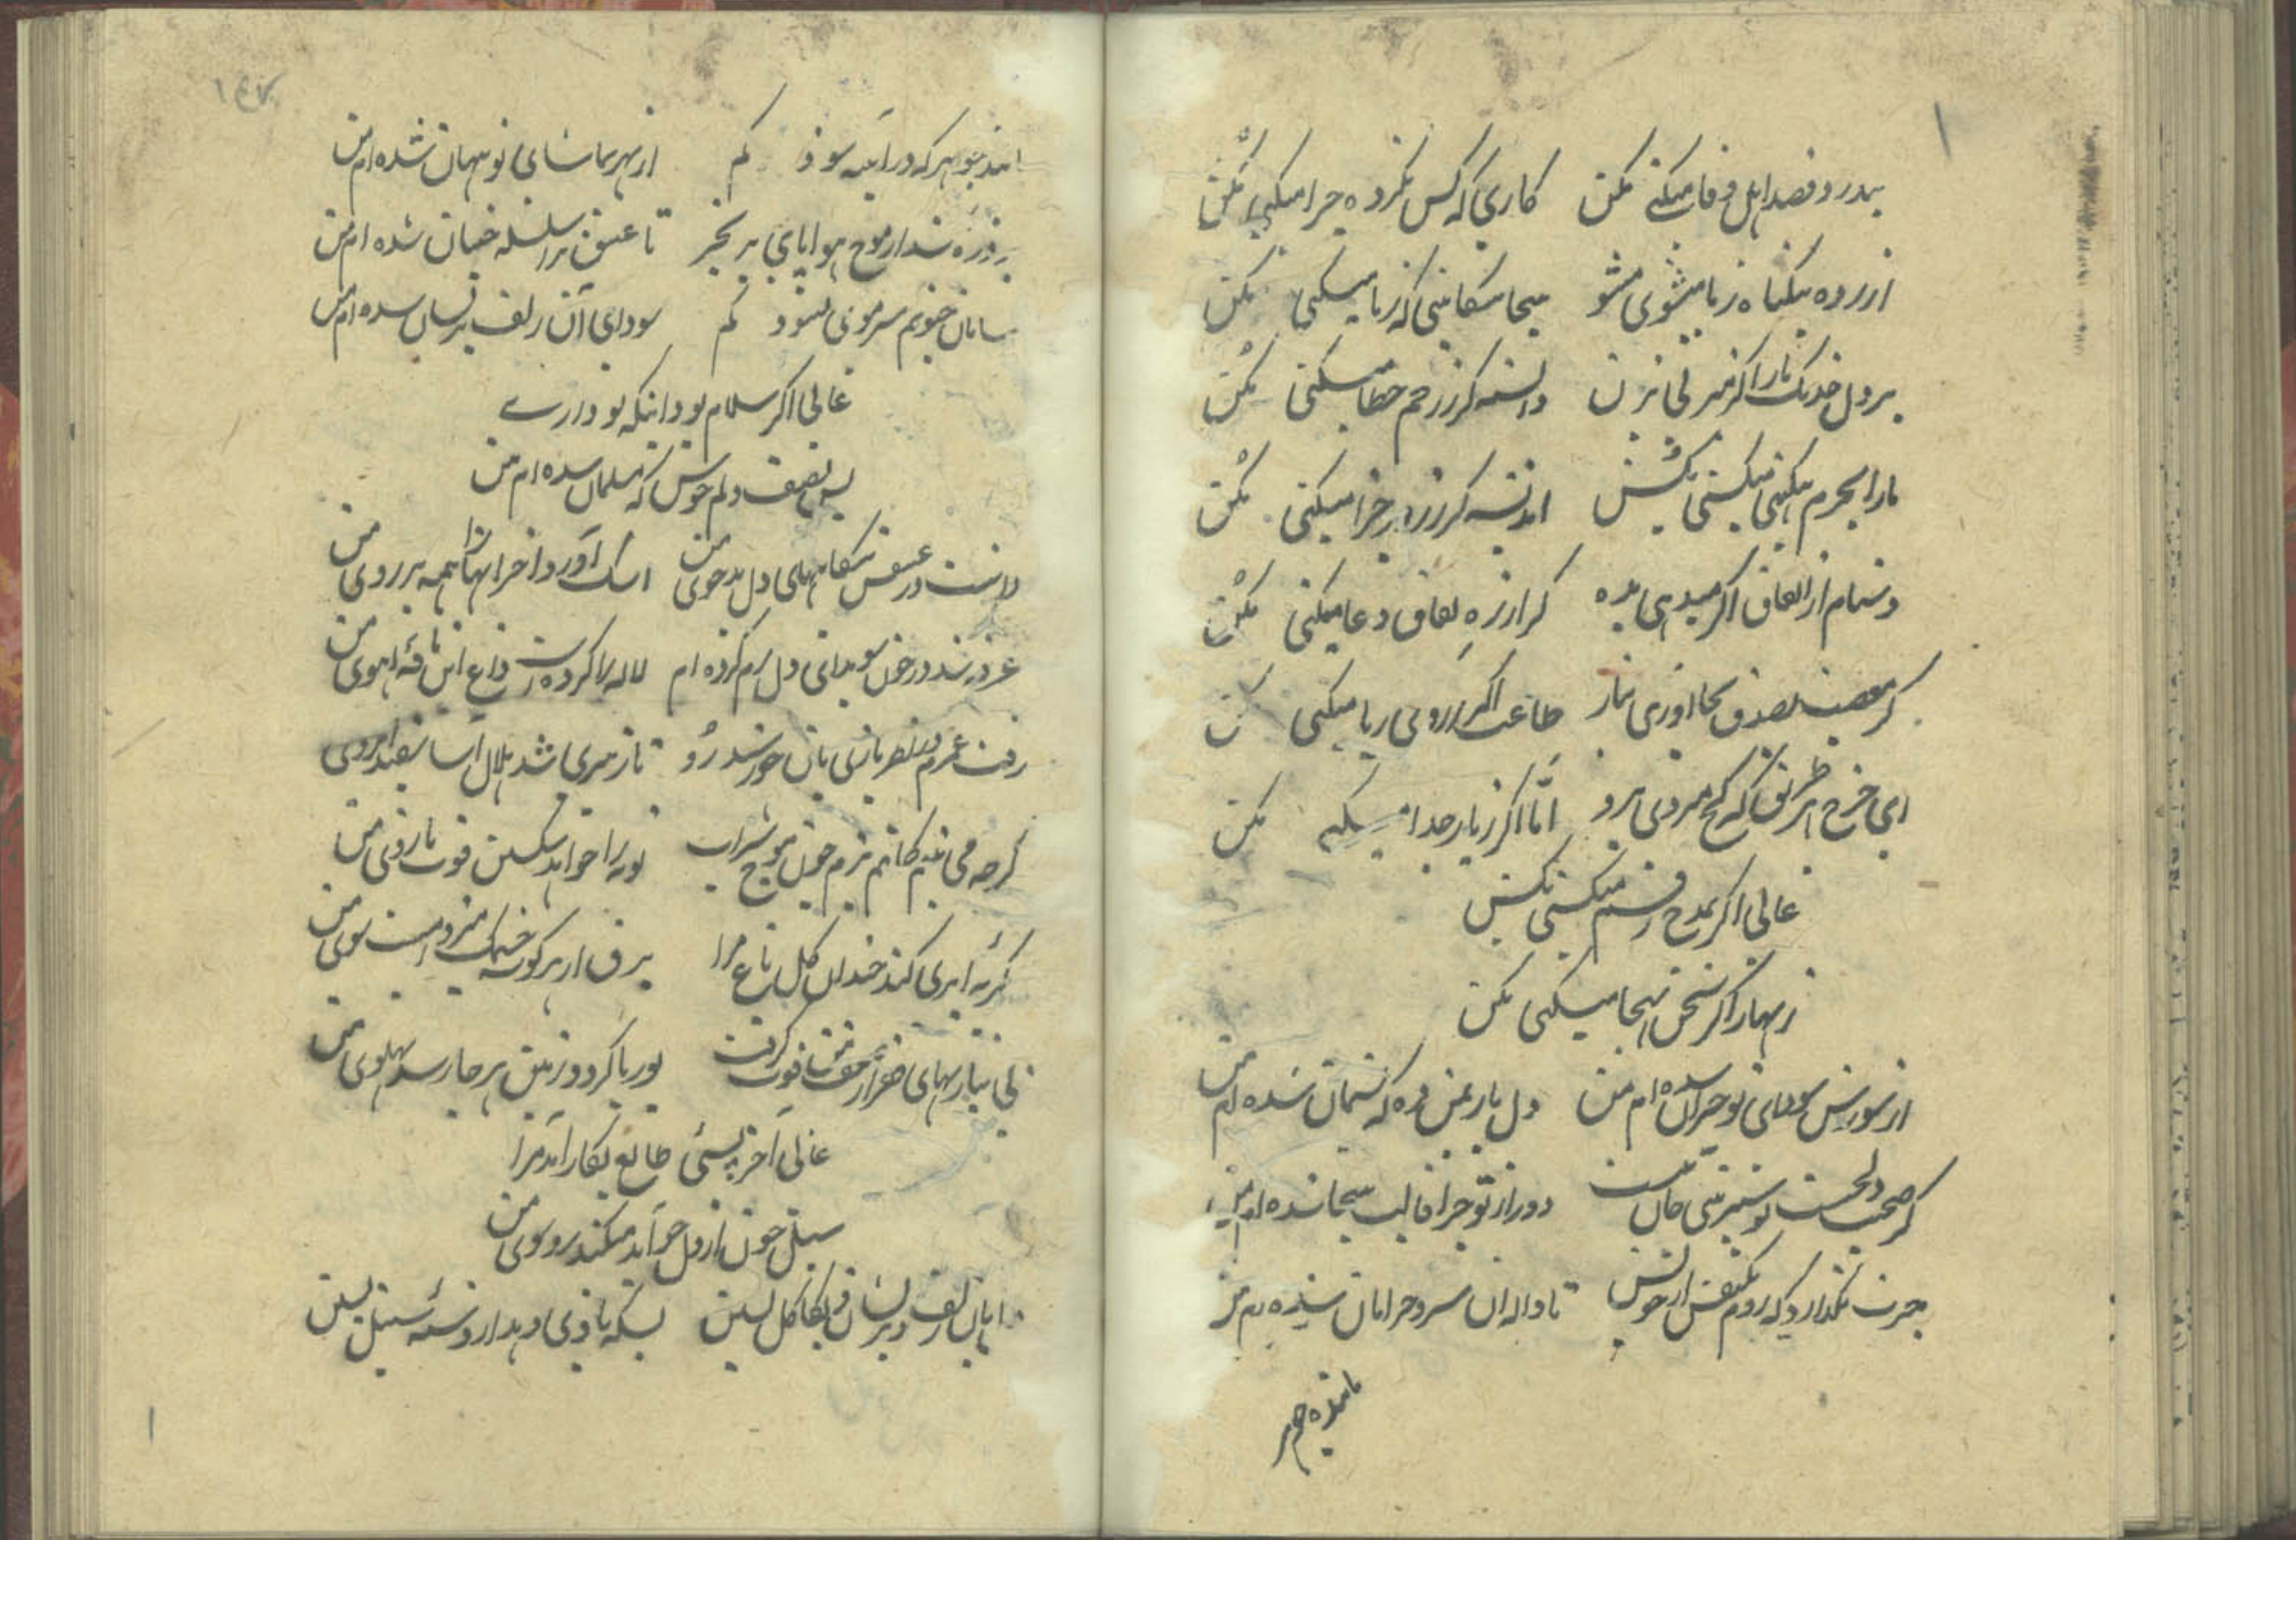 بیدرد قصد اهل وفا میکنی مکن کاری که کس نکرده چرا میکنی مکن
آزرده بیگناه ز ما میشوی مشو بیجا شکایتی که ز ما میکنی مکن
بر دل خدنک ناز اکر میزنی بزن دانسته کر ز رحم خطا میکنی مکن
ما را بجرم بیکنهی میکشی بکش اندیشه کر ز روز جزا میکنی مکن
دشنام از التفات اکر میدهی بده کر از ره نفاق دعا میکنی مکن
کر معصیت بصدق بجا آوری بیار طاعت اکر ز روی ریا میکنی مکن
ای چرخ هر طریق که کج میروی برو اما اکر ز یار جدا میکنی مکن
عالی اکر بمدح رقم میکشی بکش
زنهار اکر سخن بهجا میکنی مکن
از شورش سودای تو حیران شده ام من دل باز بمن ده که پشیمان شده ام من
کر صحبت دلچسب تو شیرینی جان نیست دور از تو چرا قالب بیجان شده ام من
حیرت نگذارد که روم یکنفس از خویش تا واله آن سرو خرامان شده ام من
مانند جوهر
مانند جوهر که در آینه شود کم از بهر تماشای تو پنهان شده ام من
هر ذره شد از موج هوا پای بزنجیر تا عشق ترا سلسله جنبان شده ام من
سامان جنونم سر موی نشود کم سودای آن زلف پریشان شده ام من
عالی اکر اسلام بود اینکه تو داری
بس نصف دلم خوش که مسلمان شده ام من
در عشق شکایتهای دل بدخوی من اشک آورد آخر اینها همه بر روی من
غرقه شد در خون سویدای دل رم کرده ام لاله را کرده است داغ این نافه آهوی من
رفت عمرم در نظر بازی بآن خورشید رو تا ز پیری شد هلال آسا سفید ابروی من
کرچه می بینم کاتم بزم چون موج شراب توبه را خواهد شکستن قوت بازوی من
کریه ابری کند خندان کل باغ مرا برق از هر کوشه چشمک میزند سوی من
بی نیازیهای فقر از ضعف قوت کرفت بوریا کردد زمین هر جا رسد پهلوی من
عالی آخر پستی طالع بکار آمد مرا
سیل خون از دل چو آید میکند رو سوی من
زلف پریشان کاکل ببین بسکه بازی میدهد از دسته سنبل ببین